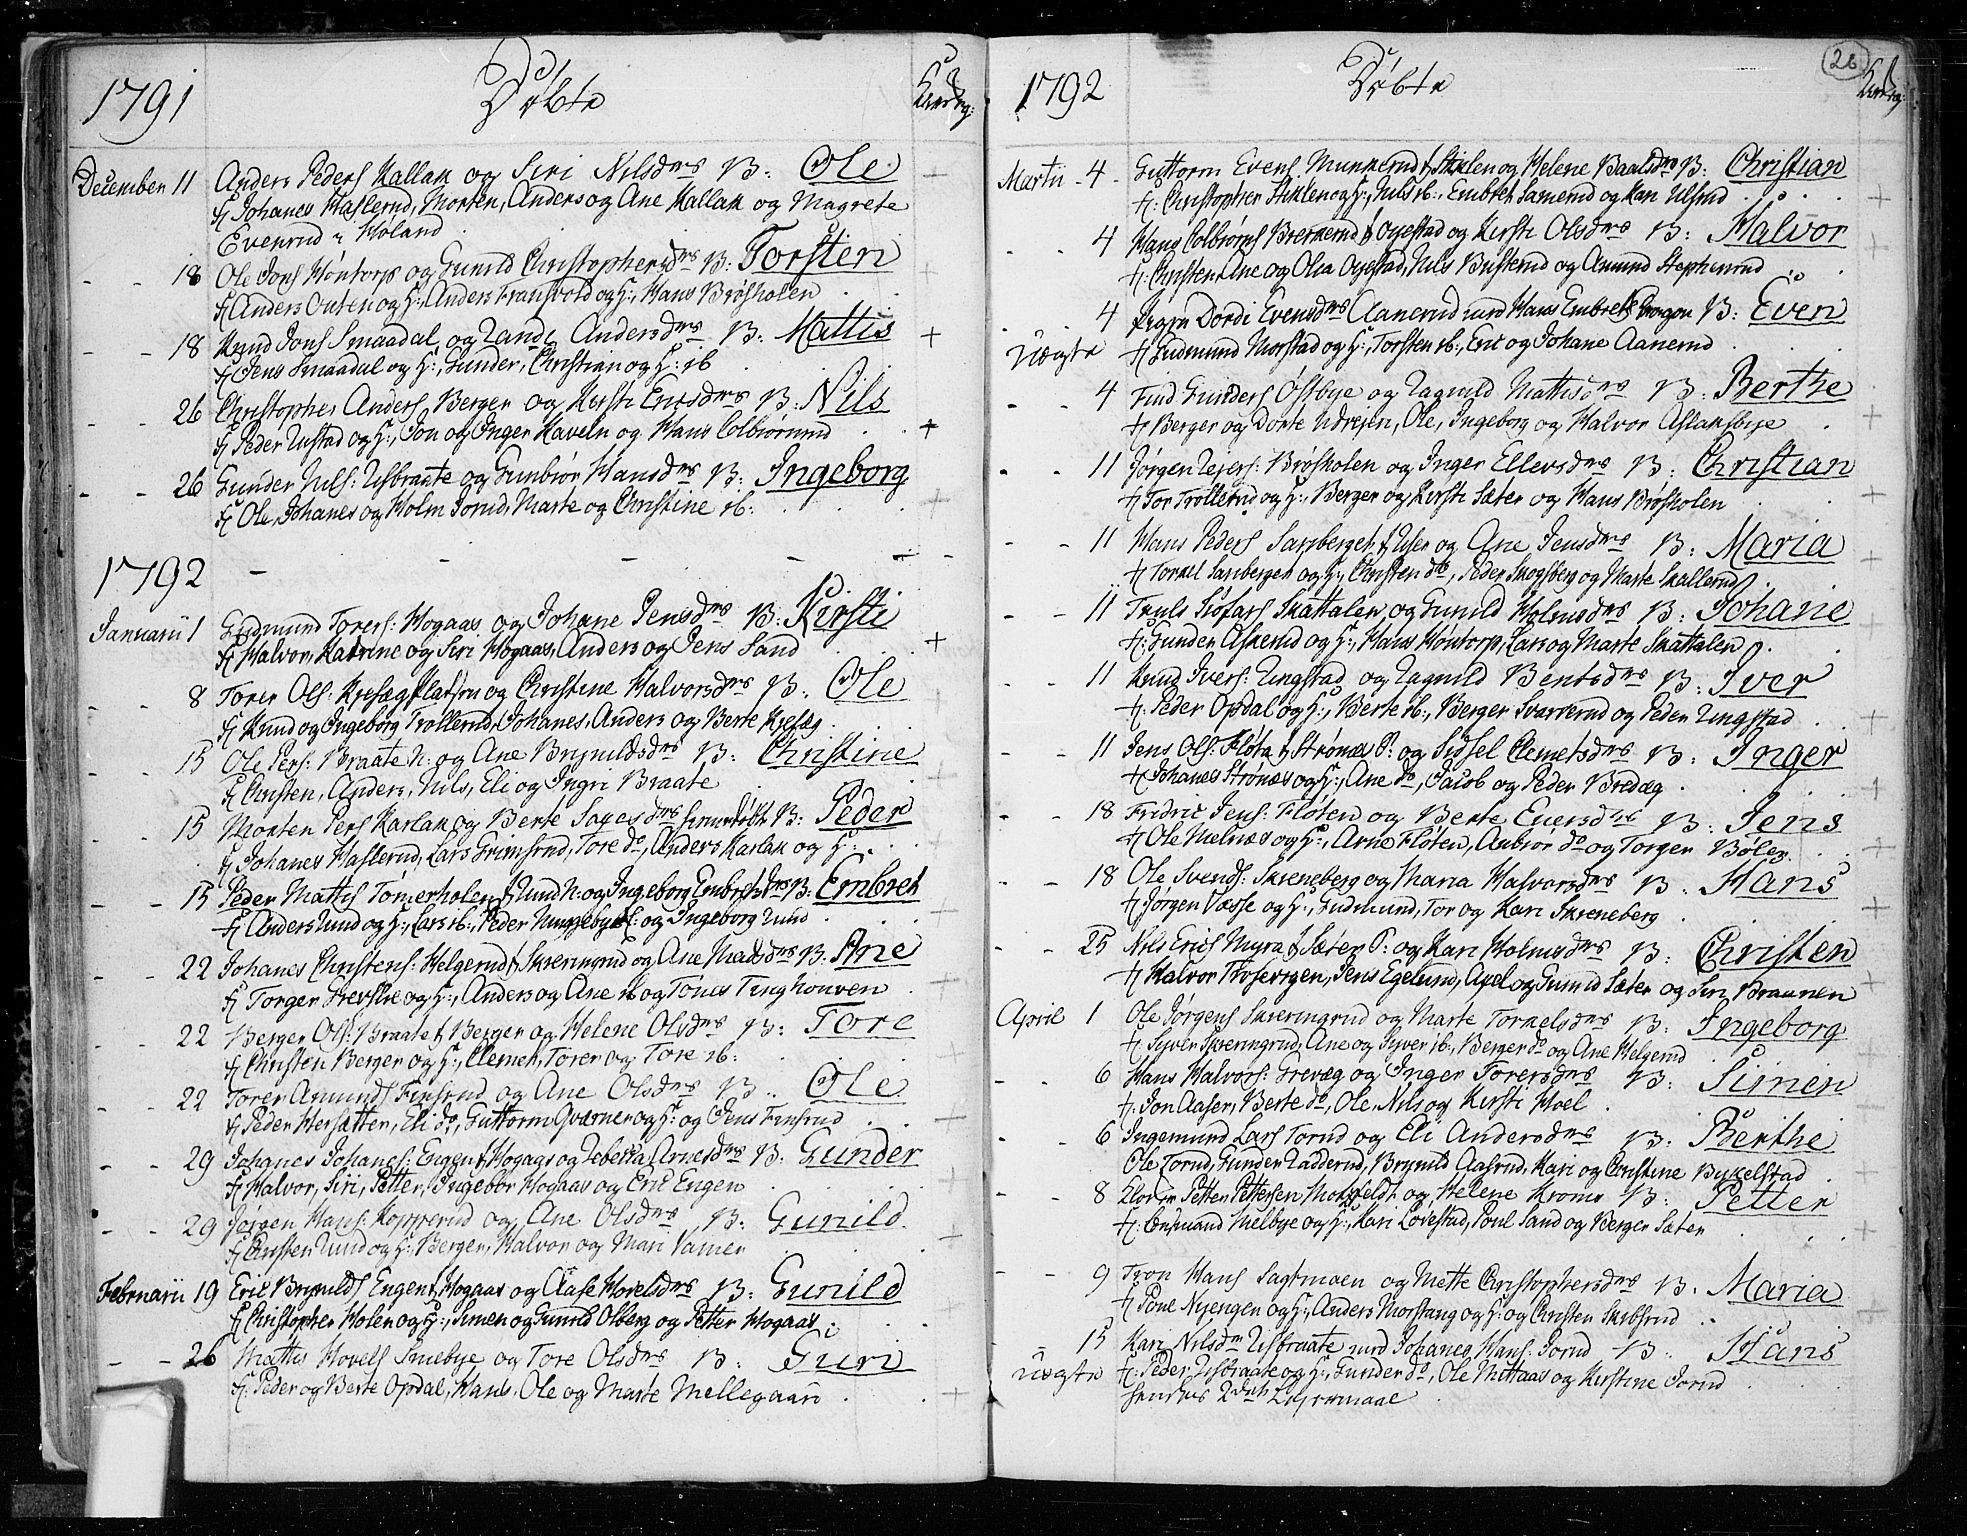 1791
Döbte
December 11 Anders Peders Kallak og Siri Nilsdrs B: Ole
Johanes Haslerud, Morten, Anders og Ane Kallak og Magrete
Evenrud i Høland
18 Ole Jons Høntorp og Gunild Christophersdrs B: Torsten
Anders Outen og H:, Anders Transvold og H:, Hans Brøsholen
18 Knud Jons Smaadal og Randi Andersdrs B: Mattis
Jens Smaadal og H:, Gunder, Christian og H: ib
26 Christopher Anders Berger og Kirsti Ericsdrs B: Nils
Peder Ustad og H:, Jon og Inger Kaveln og Hans Colbiørnrud
26 Gunder Nils: Risbraate og Gunbiør Hansdrs B: Ingeborg
Ole, Johanes og Holm Jorud, Marte og Christine ib:
1792
Januarii 1 Gudmund Torers: Hogaas og Johane Jensdrs B: Kirsti
Halvor, Katrine og Siri Hogaas, Anders og Jens Sand
8 Torer Ols: og Christine Halvorsdrs B: Ole
Knud og Ingeborg Trollerud, Johanes, Anders og Berte
15 Ole Pers: Braate N: og Ane Brynildsdrs B: Christine
Christen, Anders, Nils, Eli og Ingri Braate
15 Morten Pers Karlak og Berte B: Peder
Johanes Haslerud, Lars Grimsrud, Tore do, Anders Karlak og H:
15 Peder Mattis Tømerholen f Lund N: og Ingeborg Embretsdrs B: Embret
Anders Lund og H:, Lars ib:, Peder og Ingeborg Lund
22 Johanes Christens: Helgerud f Skreningrud og Ane Madsdrs B: Ane
Torger og H:, Anders og Ane ib og Tones Tinghouven
22 Berger Ols: Braate f Berger og Helene Olsdrs B: Tore
Christen Berger og H:, Clemet, Torer og Tore ib:
22 Torer Amunds Finsrud og Ane Olsdrs B: Ole
Peder Hersætter, Eli do, Guttorm Qværner og H: og Jens Finsrud
29 Johanes Johanes: Engen f Hogaas og Rebekka Arnesdrs B: Gunder
Halvor, Siri, Petter, Ingebor Hogaas og Eric Engen
29 Jørgen Hans: Kopperud og Ane Olsdrs B: Gunild
Christen Lund og H:, Berger, Halvor og Mari Vamer
Februarii 19 Eric Brynilds Engen f Hogaas og Aase Hovelsdrs B: Gunild
Christopher Holen og H:, Simen og Gunild Olberg og Petter Hogaas
26 Mattis Hovels Smebye og Tore Olsdrs B: Guri
Peder og Berte Opdal, Hans, Ole og Marte Mellegaard
1792
Döbte
26
Martii 4 Guttorm Evens Munkerud f Stiklen og Helene B: Christian
Christopher Stiklen og H:, Nils ib:, Embret Sanerud og Kari Ulsrud
4 Hans Colbiørns f Ogestad og Kirsti Olsdrs B: Halvor
Christen, Ane og Olia Ogestad, Nils Busterud og Amund Stephenrud
4 Dordi Evensdrs Aanerud med Hans Embrets B: Even
uægte Gudmund Morstad og H:, Torsten ib:, Eric og Johane Aanerud
4 Find Gunders Østbye og Ragnild Mattisdrs B: Berthe
Berger og Dorte Udrejen, Ole, Ingeborg og Halvor Aslaksbye
11 Jørgen Brøsholen og Inger Ellevsdrs B: Christian
Tor Trollerud og H:, Berger og Kirsti Sæter og Hans Brøsholen
11 Hans Peders Sanberget f og Ane Jensdrs B: Maria
Torkel Sanberget og H:, Christen do, Peder Skogsberg og Marte Skallerud
11 Truls Siøfars Skattalen og Gunild Holmsdrs B: Johane
Gunder Askerud og H:, Hans Høntorp, Lars og Marte Skattalen
11 Knud Ivers: Ringstad og Ragnild Bentsdrs B: Iver
Peder Opdal og H:, Berte ib:, Berger Svarverud og Peder Ringstad
11 Jens Ols: Fløta f Strønæs P: og Sidsel Clemetsdrs B: Inger
Johanes Strønæs og H:, Ane do, Jacob og Peder Bredæg
18 Fridric Jens: Fløten og Berte Eversdrs B: Jens
Ole Melnæs og H:, Arne Fløten, Anbiør do og Torger Bøler
18 Ole Svends: Skreneberg og Maria Halvorsdrs B: Hans
Jørgen Vasse og H:, Gudmund, Tor og Kari Skreneberg
25 Nils Erics Myra f Sæter P: og Kari Holmsdrs B: Christen
Halvor, Jens Egelund, Axel og Gunild Sæter og Siri Braanen
April 1 Ole Jørgens Skreningrud og Marte Torkelsdrs B: Ingeborg
Syver Skreningrud, Ane og Syver ib:, Berger do og Ane Helgerud
6 Hans Halvors: Grevæg og Inger Torersdrs B: Simen
Jon Aaser, Berte do, Ole, Nils og Kirsti Moel
6 Ingemund Lars Torud og Eli Andersdrs B: Berthe
Ole Torud, Gunder Ladderud, Brynild Aasrud, Kari og Christine Bukelstad
8 Petter Pettersen Motzfeldt og Helene Krome B: Petter
Melbye og H:, Kari Lovestad, Poul Sand og Berger Sæter
9 Tron Hans Sagtmoen og Mette Christophersdrs B: Maria
Poul Nyengen og H:, Anders Morstang og H: og Christen Skibsrud
15 Kari Nilsdr Risbraate med Johanes Hans: Jorud B: Hans
uægte Peder Risbraate og H:, Gunder do, Ole Mittaas og Kirstine Jorud
hendes 2det Lejermaal